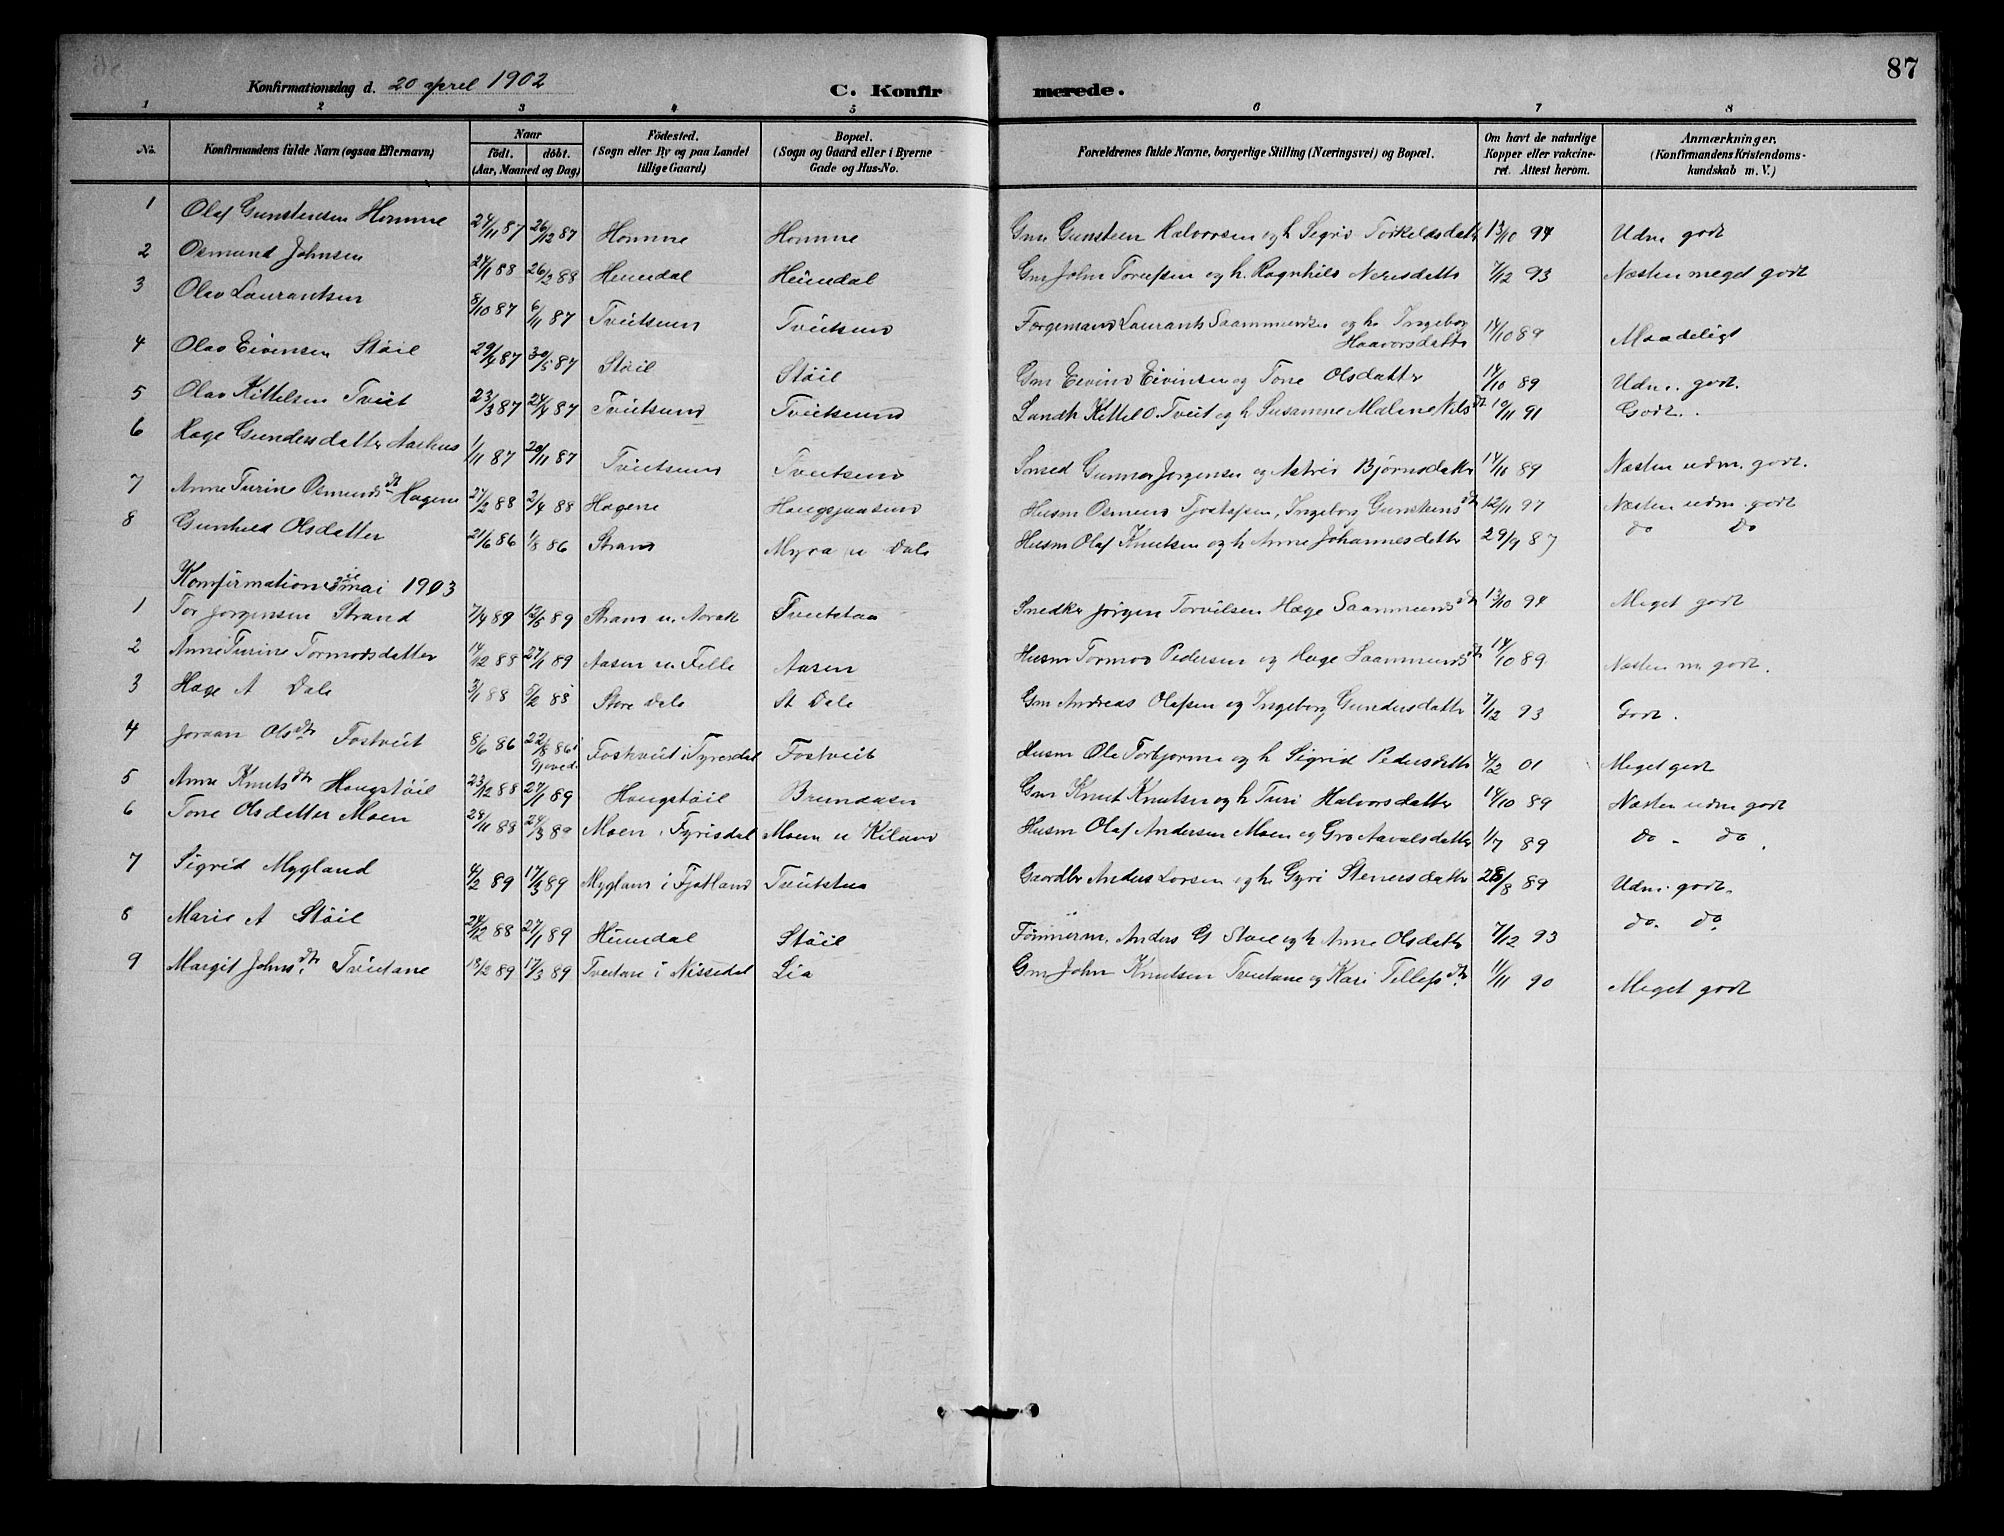 87
Konfirmationsdag d. 20 aprel 1902 C. Konfir merede.
1 2 3 4 5 6 7 8
No. Konfirmandens fulde Navn (ogsaa Efternavn) Naar født. døbt. (Aar, Maaned og Dag) Fødested. (Sogn eller By og paa Landet tillige Gaard) Bopæl. (Sogn og Gaard eller i Byerne Gade og Hus-No. Forældrenes fulde Navne, borgerlige Stilling (Næringsvei) og Bopæl. Om havt de naturlige Kopper eller vakcineret. Attest herom. Anmærkninger. (Konfirmandens Kristendomskundskab m. V.)
1 Olaf Gunstensen Homme 24/11 87 26/12 87 Homme Homme Gm Gunsteen Halvorsen og h Sigrid Torkeldsdatt 13/10 94 Udm godt
2 Osmund Johnsen 24/1 88 26/2 88 Heimdal Heimdal Gm John Torufsen og h. Ragnhild Nerisdatte 7/12 93 Næsten meget godt
3 Olav Laurantsen 8/10 87 6/11 87 Tveitsund Tveitsund Færgemand Laurants Saamundsen og h. Ingeborg Haavorsdatte 14/10 89 Maadeligt
4 Olav Eivinsen Støil 29/4 87 30/5 87 Støil Støil Gm Eivind Eivinsen og Tone Olsdatter 14/10 89 Udm. godt.
5 Olav Kittelsen Tveit 23/3 87 24/4 87 Tveitsund Tveitsund Landh Kittel O. Tveit og h Susanne Maline Nilsdt 10/11 91 Godt.
6 Hæge Gundersdatter Aarhus 1/11 87 20/11 87 Tveitsund Tveitsund Smed Gunner Jørgensen og Astrid Bjørnsdatter 14/11 89 Næsten udm. godt.
7 Anne Turine Osmundsdt Hagene 27/2 88 2/4 88 Hagene Haugsjaasund Husm Osmund Tjostofsen, Ingeborg Gunstensdtr 12/11 97 Næsten udm. godt
8 Gunhild Olsdatter 21/6 86 1/8 86 Strand Myra u Dale Husm Olaf Knutsen og h Anne Johannesdatter 29/9 87 do do
Konfirmation 3die mai 1903
1 Tor Jørgensen Strand 7/4 89 12/5 89 Strand u. Norak Tveitstaa Snedker Jørgen Torvilsen Hæge Saamundsdtr 13/10 94 Meget godt
2 Anne Turine Tormodsdatter 14/12 88 27/1 89 Aasen u. Felle Aasen Husm Tormod Pedersen og Hæge Saamundsdtr 14/10 89 Næsten m. godt.
3 Hæge A Dale 3/1 88 5/2 88 Store Dale St Dale Gm Andreas Olafsen og Ingeborg Gundersdatter 7/12 93 Godt.
4 Joraan Olsdtr Fostveit 8/6 86 22/8 86 Foskveit i Fyresdal Fostveit Husm Ole Torbjørnsen og h Sigrid Pedersdatte 4/2 01 Meget godt
5 Anne Knutsdtr Haugstøil 23/12 88 27/1 89 Haugstøil Brendaasen Gm Knut Knutsen og h Turi Halvorsdatter 14/10 89 Næsten udm godt
6 Tone Olsdatter Moen 28/11 88 24/3 89 Moen i Fyrisdal Moen u Kiland Husm Olaf Andersen Moen og Gro Aavalsdatter 1/7 89 do - do.
7 Sigrid Mygland 4/2 89 17/3 89 Mygland i Fjotland Tveitstaa Gaardbr Anders Larsen og h. Gyri Stenersdatte 28/8 89 Udm. godt.
8 Marie A Støil 24/12 88 27/1 89 Heimdal Støil Tømmerm. Anders G Støil og h Anne Olsdatter 7/12 93 do. do.
9 Margit Johnsdtr. Tveitane 13/2 89 17/3 89 Tveitane i Nissedal Lia Gm John Knutsen Tveitane og Kari Tellefsdtr. 11/11 90 Meget godt